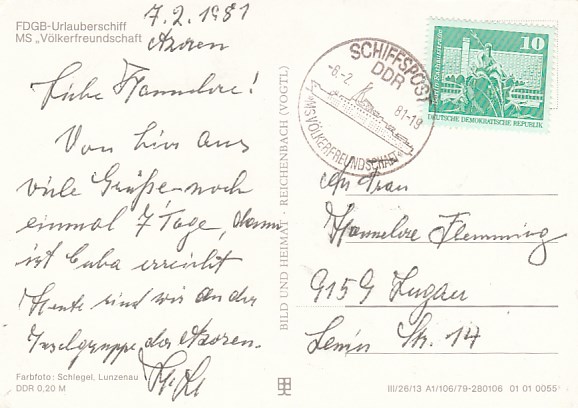 FDGB-Urlauberschiff
MS „Völkerfreundschaft
7.2.1981
Azoren
Liebe Hannelore!
Von hier aus
viele Grüße noch
einmal 7 Tage, dann
ist Cuba erreicht
Heute sind wir an der
Inselgruppe der Azoren.
Farbfoto: Schlegel, Lunzenau
DDR 0,20 M
BILD UND HEIMAT · REICHENBACH (VOGTL)
SCHIFFSPOST
DDR
-6.-2. 81-19
MS VÖLKERFREUNDSCHAFT
10
DEUTSCHE DEMOKRATISCHE REPUBLIK
An Frau
Hannelore Flemming
9159 Lugau
Lenin Str. 14
III/26/13 A1/106/79-280106 01 01 0055